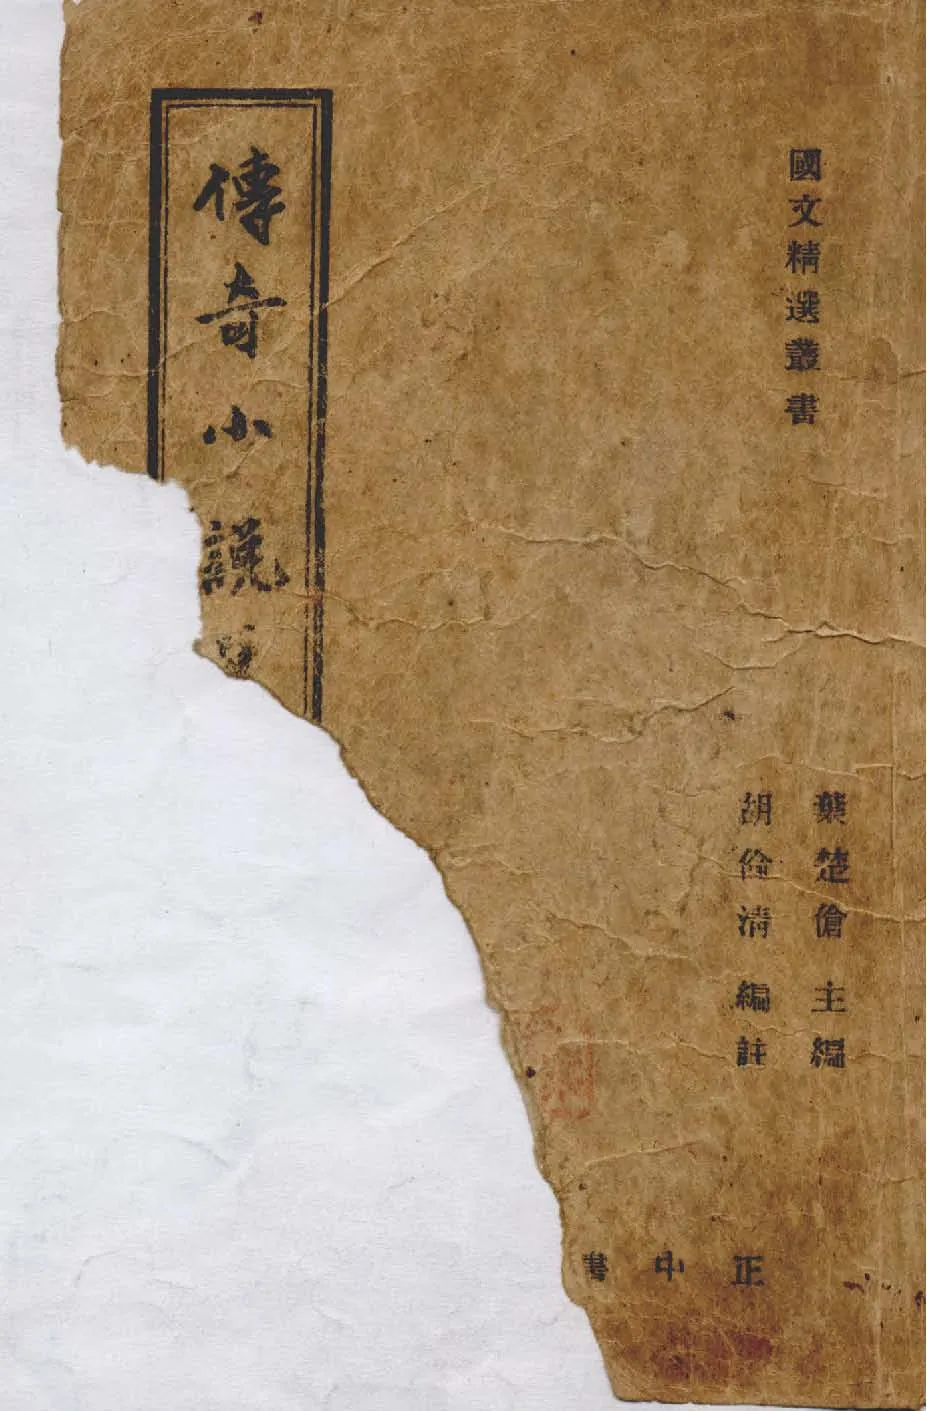 國文精選叢書
葉楚傖 主編
胡倫清 編註
傳奇小說
正中書